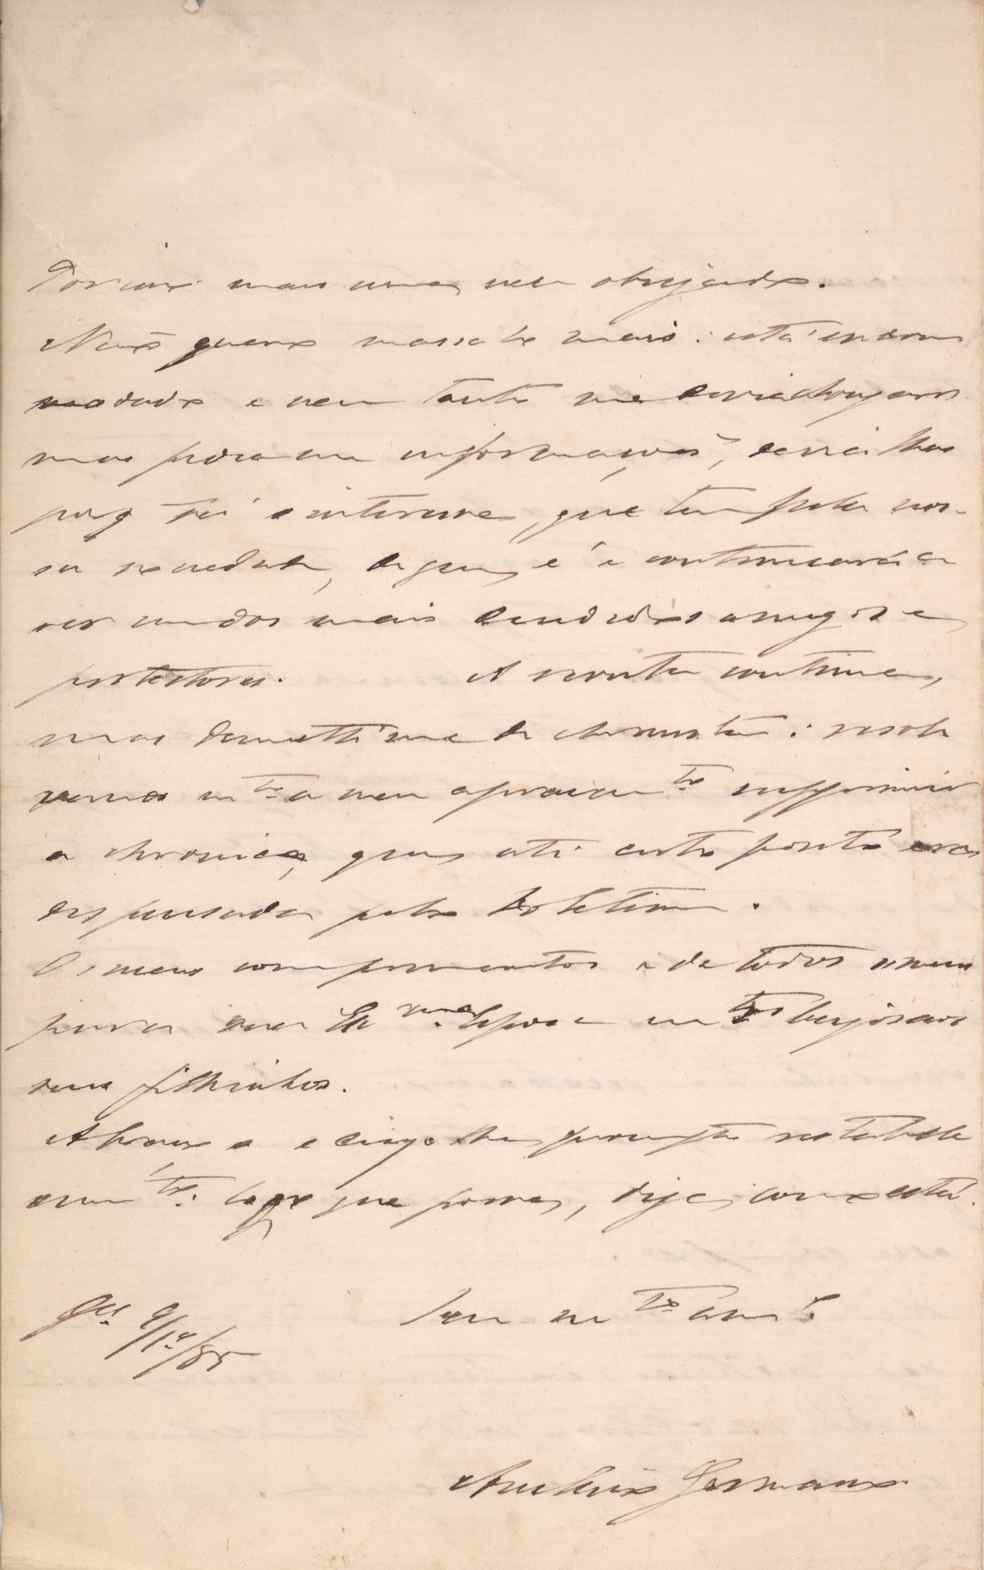 Por isso mais uma vez obrigado.
Não quero massal-o mais: está incom
modado e nem tanto me devia alongar
mas para dar informações, devia
porq sei o interesse, que tem pela nos-
sa sociedade, de quem é e continuará a
ser um dos mais dedicados amigos e
protectores. A revista continua,
mas demetti-me de chronista: resol
vemos m.to a meu aprazim.to supprimir
a chronica, que até certo ponto era
dispensada pelo boletim.
Os meus comprimentos e de todos os meus
para sua Ex.ma Esposa e m.tos beijos aos
seus filhinhos.
Abraço-o e desejo-lhe prompto restabele
cim.to. Logo que possa, diga como está.
G.es 9/1º/85
Seu m.to am.º
Avelino Germano